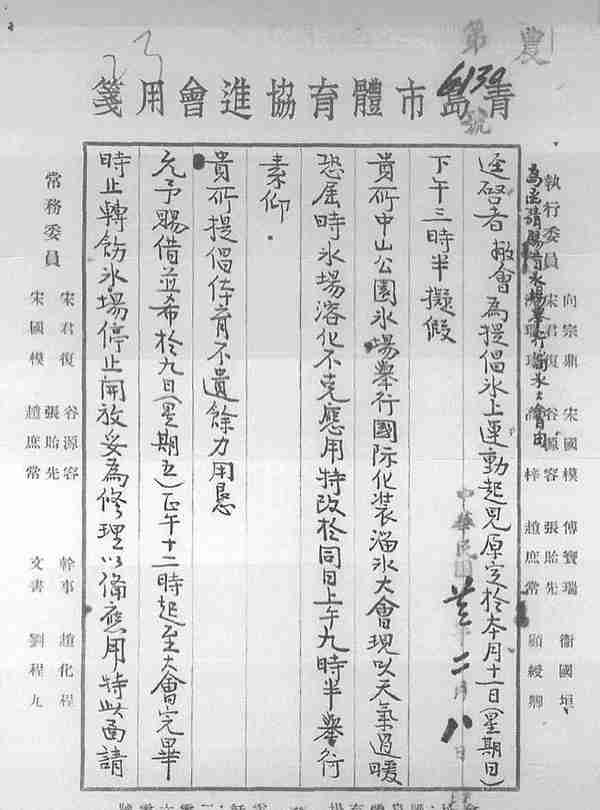 農
第6139號
青島市體育協進會用箋
為函請賜借氷場舉行溜氷大會由
執行委員
向宗鼎 宋國模 傅寶瑞 衞國垣
宋君復 谷源容 張貽先 顧綬卿
梓 趙庶常
逕啓者敝會為提倡氷上運動起見原定於本月十一日(星期日)
中華民國廿三年二月八日
下午三時半擬假
貴所中山公園氷場舉行國际化装溜氷大會現以天氣過暖
恐屆時氷場溶化不克應用特改於同日上午九時半舉行
素仰
貴所提倡体育不遺餘力用懇
允予賜借並希於九日(星期五)正午十二時起至大會完畢
時止轉飭氷場停止開放妥為修理以備應用特此函請
常務委員
宋君復 谷源容
宋國模 張貽先
趙庶常
幹事 趙化程
文書 劉程九